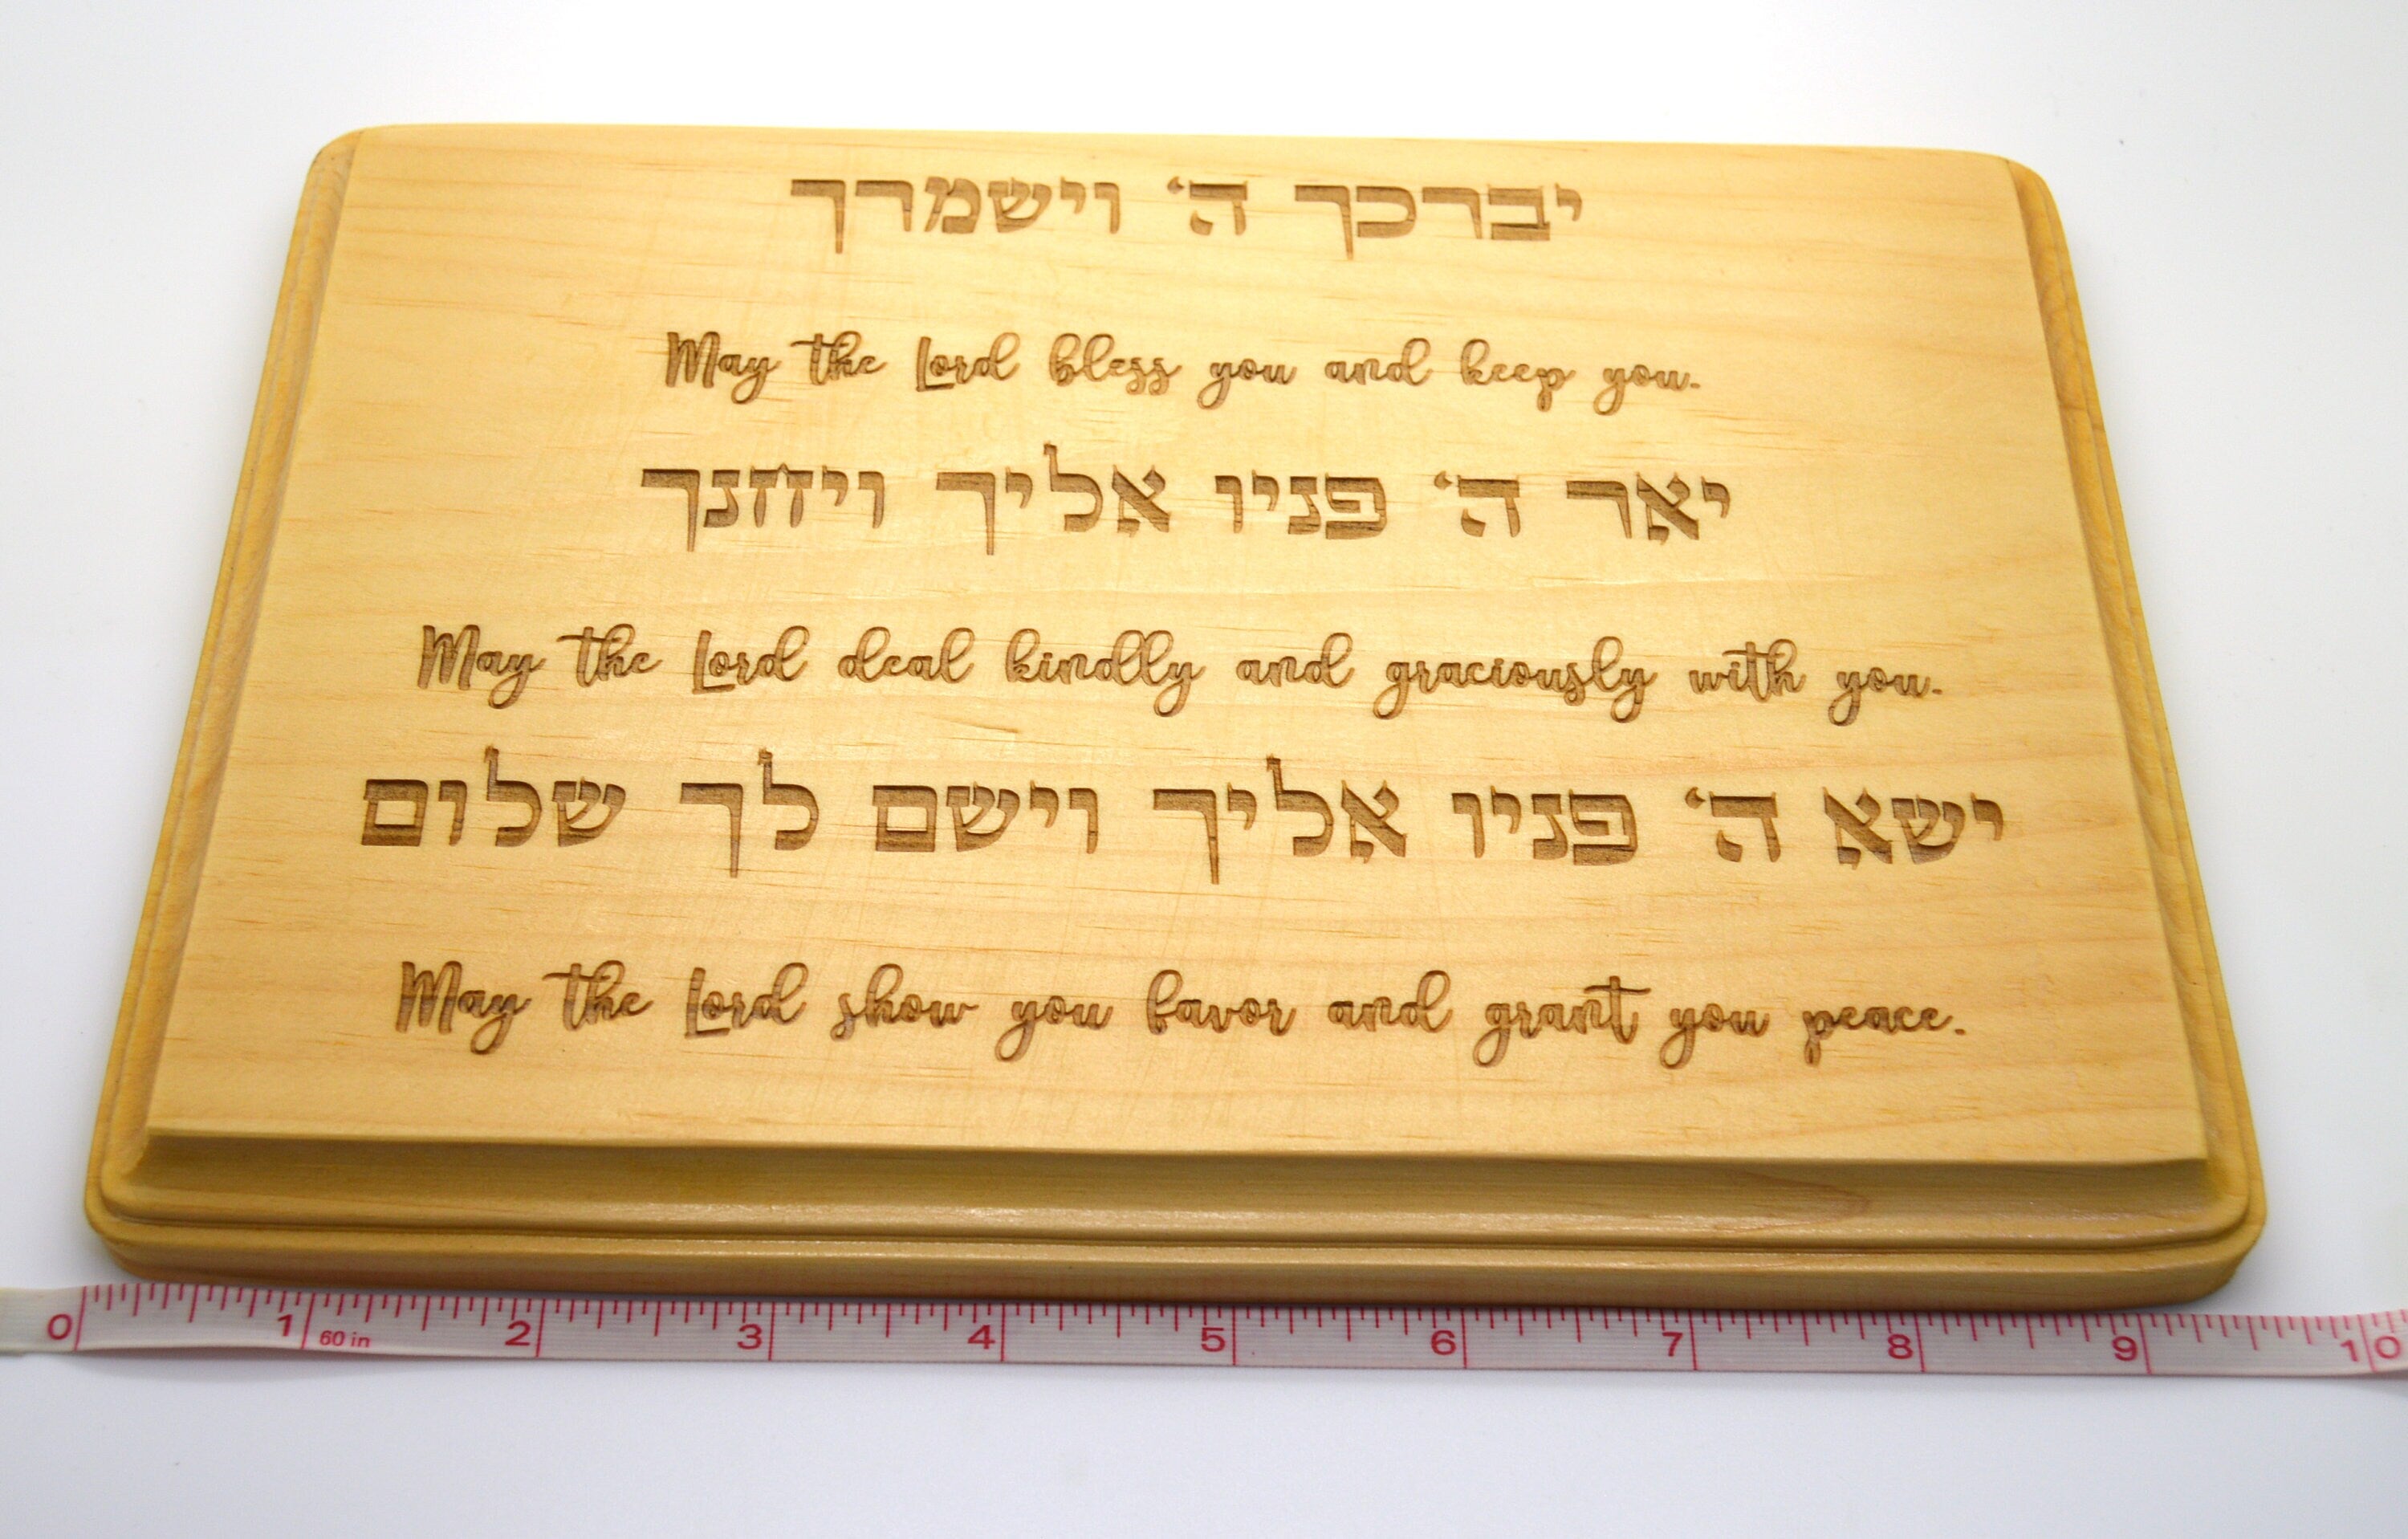 יברכך ה' וישמרך
May the Lord bless you and keep you.
יאר ה' פניו אליך ויחנך
May the Lord deal kindly and graciously with you.
ישא ה' פניו אליך וישם לך שלום
May the Lord show you favor and grant you peace.
0 1 60 in 2 3 4 5 6 7 8 9 10